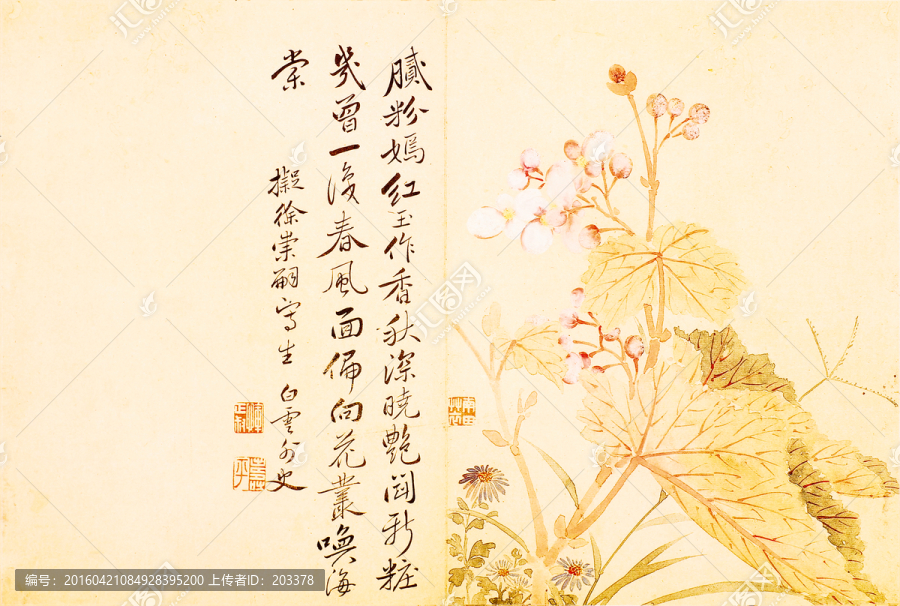 膩粉嫣红玉作香秋深曉艷鬪新粧
幾曾一春風面偏向花叢喚海
棠
擬徐崇嗣寫生 白雲外史
编号：20160421084928395200 上传者ID：203378